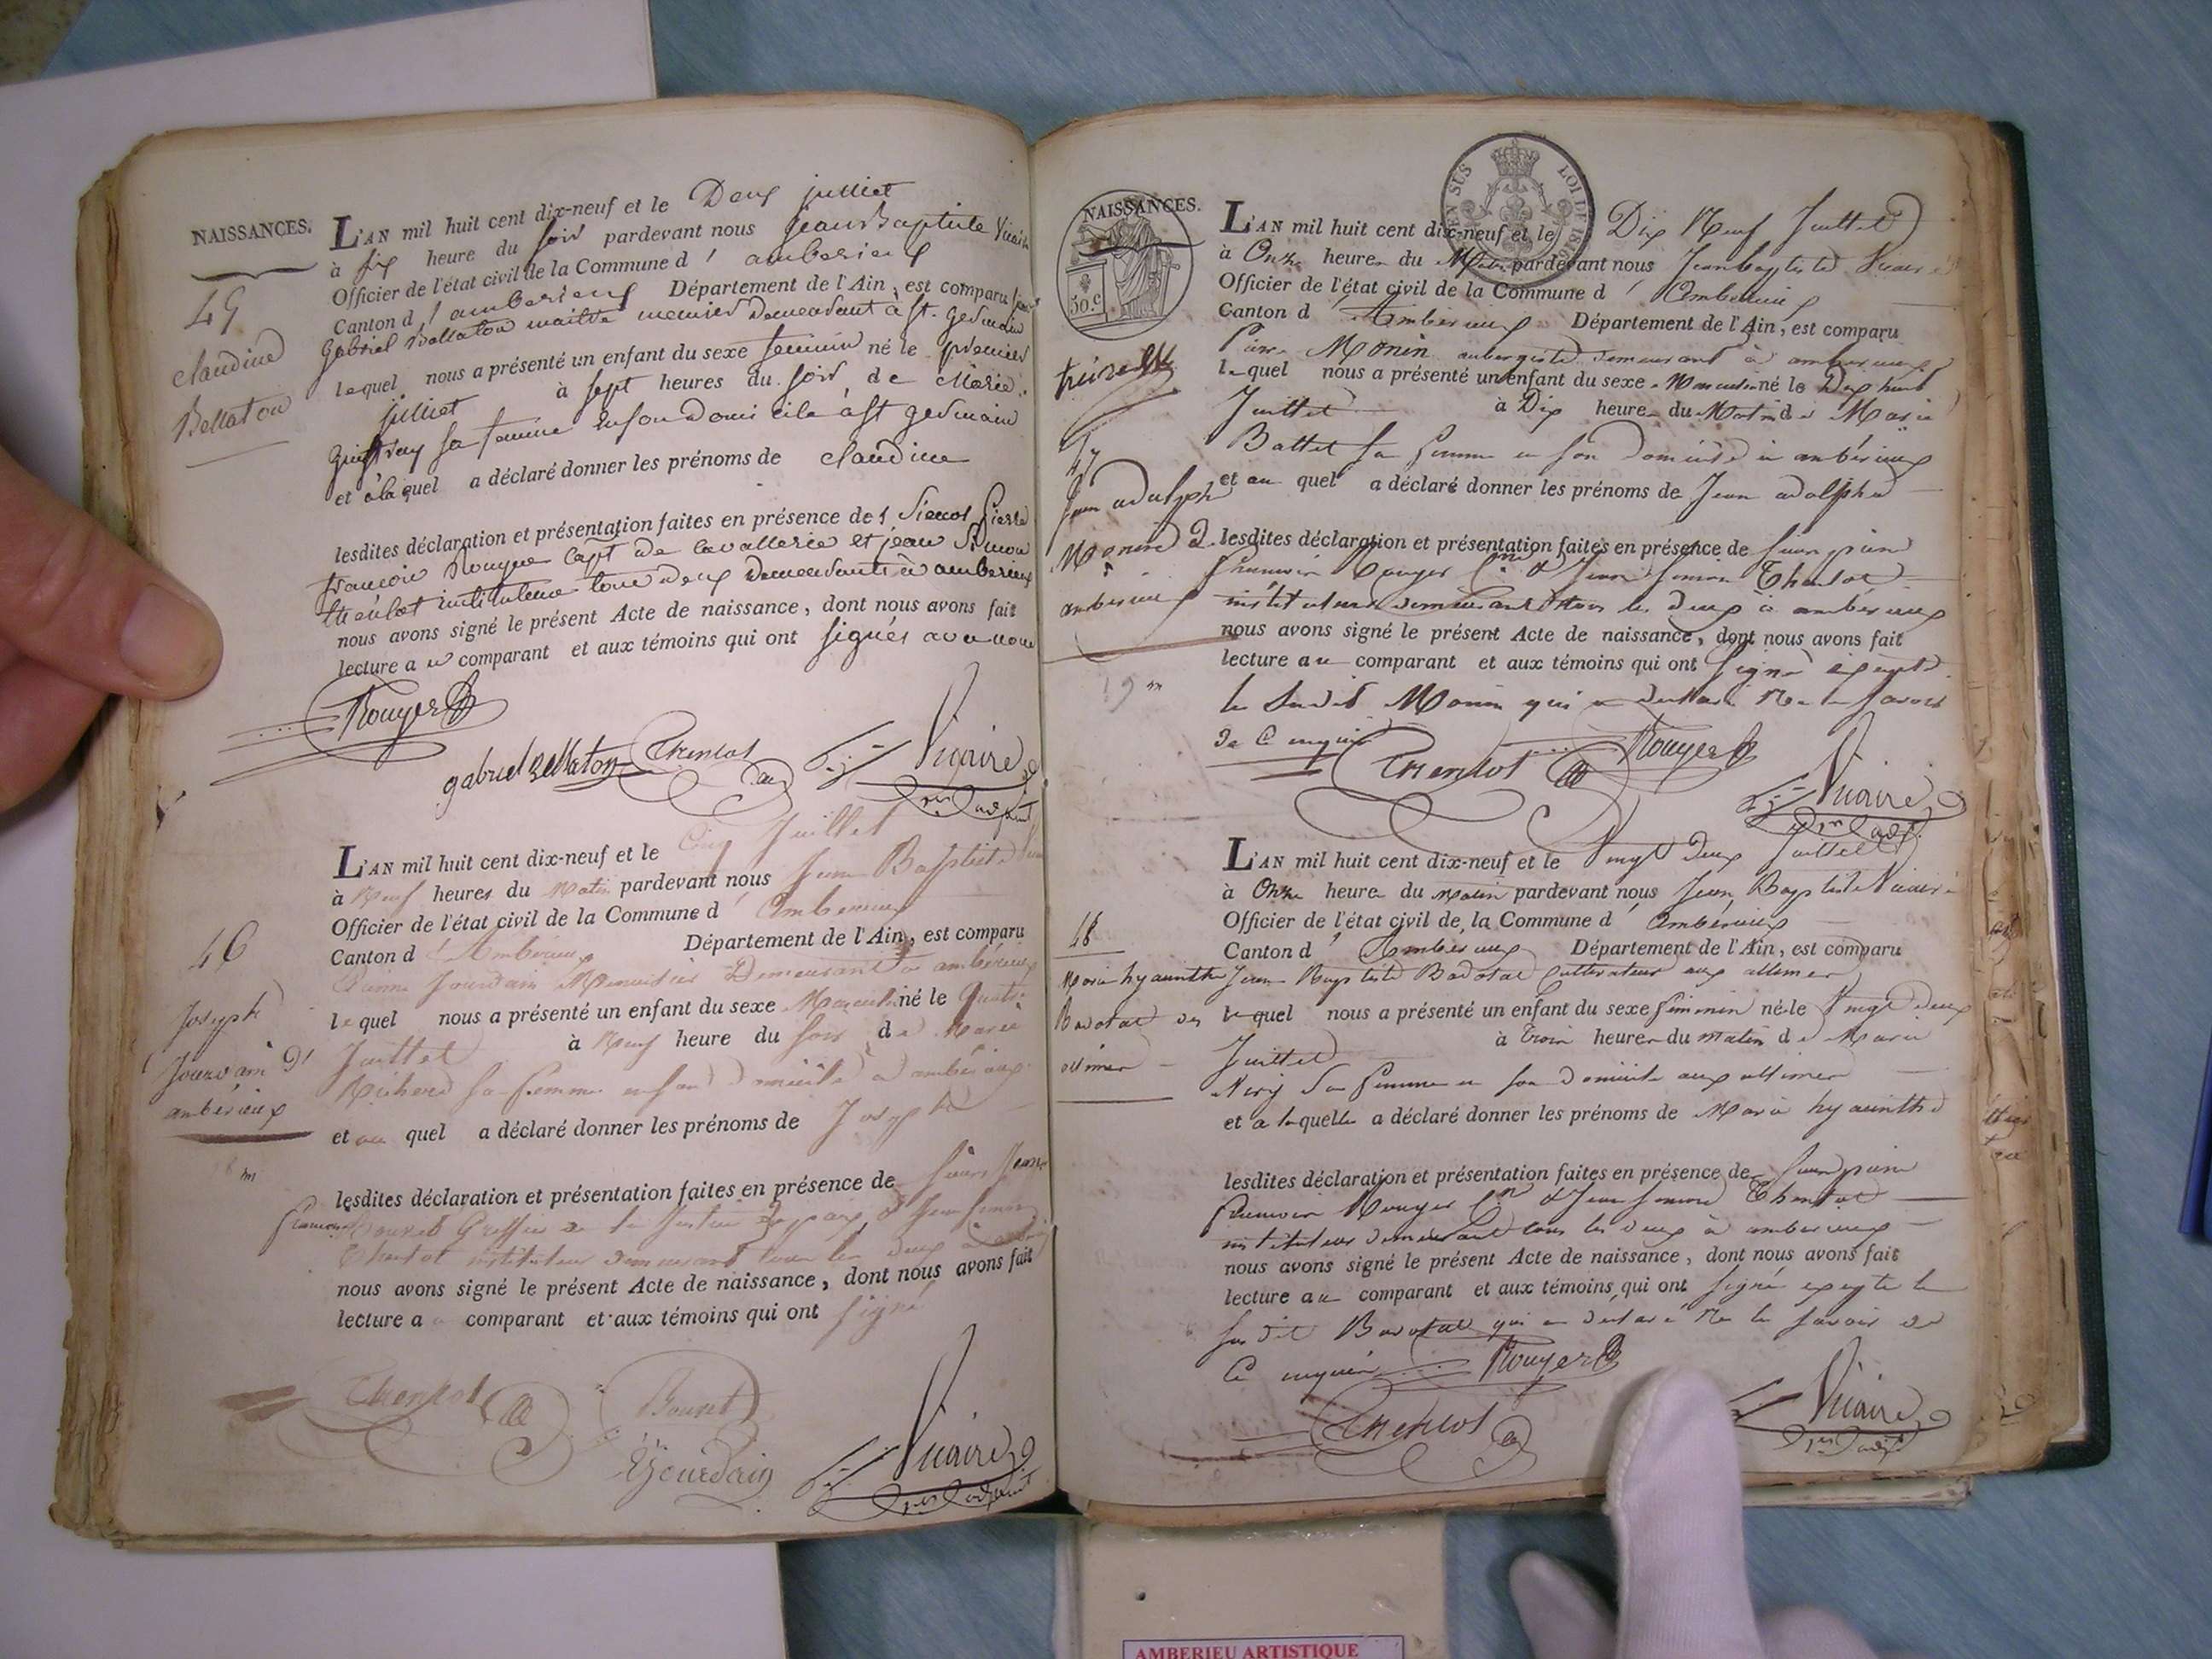 NAISSANCES.
L'AN mil huit cent dix-neuf et le Deux juillet
à six heure du soir pardevant nous jean Baptiste Vicaire
Officier de l'état civil de la Commune d' amberieux
Canton d' amberieux Département de l'Ain, est comparu
gabriel Bellaton maitre menier demeurant à st. germain
lequel nous a présenté un enfant du sexe feminin né le premier
juillet à sept heures du soir, de Marie
sa femme en son domicile à st germain
et à laquel a déclaré donner les prénoms de claudine
lesdites déclaration et présentation faites en présence des Sieurs pierre
francois Rouyer capt de cavallerie et jean Simon
thenlot instituteur tous deux demeurants à amberieux
nous avons signé le présent Acte de naissance, dont nous avons fait
lecture au comparant et aux témoins qui ont signés avec nous
45
claudine
Bellaton
Rouyer
gabriel Bellaton Thenlot Vicaire
adjoint
L'AN mil huit cent dix-neuf et le Cinq Juillet
à Neuf heures du Matin pardevant nous Jean Baptiste
Officier de l'état civil de la Commune d' Amberieux
Canton d' Ambérieux Département de l'Ain, est comparu
Jourdain Menuisier Demeurant à ambérieux
lequel nous a présenté un enfant du sexe Masculin né le Quatre
Juillet à Neuf heure du soir de Marie
Richerd sa femme en son domicile à ambérieux
et au quel a déclaré donner les prénoms de Joseph
lesdites déclaration et présentation faites en présence de
francois Bouvet Greffier de la justice de paix & Jean Simon
Thenlot instituteur demeurant tous les deux à
nous avons signé le présent Acte de naissance, dont nous avons fait
lecture a comparant et aux témoins qui ont signé
46
Joseph
Jourdain d'
ambérieux
Thenlot Bouvet
Jourdain Vicaire
adjoint
NAISSANCES.
50.c
EN SUS LOI DE 1816
L'AN mil huit cent dix-neuf et le Dix Neuf Juillet
à Onze heures du Matin pardevant nous Jean baptiste Vicaire
Officier de l'état civil de la Commune d' Ambérieux
Canton d' Ambérieux Département de l'Ain, est comparu
Pierre Monin aubergiste demeurant à amberieux
lequel nous a présenté un enfant du sexe Masculin né le Dix huit
Juillet à Dix heures du Matin de Marie
Battet sa femme en son domicile à ambérieux
et au quel a déclaré donner les prénoms de Jean adolphe
lesdites déclaration et présentation faites en présence de
francois Rouyer & Jean Simon Thenlot
instituteur demeurant tous les deux à ambérieux
nous avons signé le présent Acte de naissance, dont nous avons fait
lecture au comparant et aux témoins qui ont signé excepté
le susdit Monin qui a déclaré ne le savoir
de ce enquis
47
Jean adolphe
Monin d.
amberieux
19 m
Thenlot Rouyer
Vicaire
L'AN mil huit cent dix-neuf et le Vingt Deux Juillet
à Onze heure du Matin pardevant nous Jean Baptiste Vicaire
Officier de l'état civil de la Commune d' Ambérieux
Canton d' Ambérieux Département de l'Ain, est comparu
Jean Baptiste Badotal Cultivateur aux allimes
lequel nous a présenté un enfant du sexe féminin né le Vingt deux
Juillet à trois heures du matin de Marie
sa femme en son domicile aux allimes
et a laquelle a déclaré donner les prénoms de Marie hyacinthe
lesdites déclaration et présentation faites en présence de
francois Rouyer & Jean Simon Thenlot
instituteur demeurant tous les deux à amberieux
nous avons signé le présent Acte de naissance, dont nous avons fait
lecture au comparant et aux témoins qui ont signé excepté le
susdit Badotal qui a déclaré ne le savoir de
ce enquis
48
Marie hyacinthe
Badotal des
allimes
Rouyer
Thenlot Vicaire
AMBERIEU ARTISTIQUE